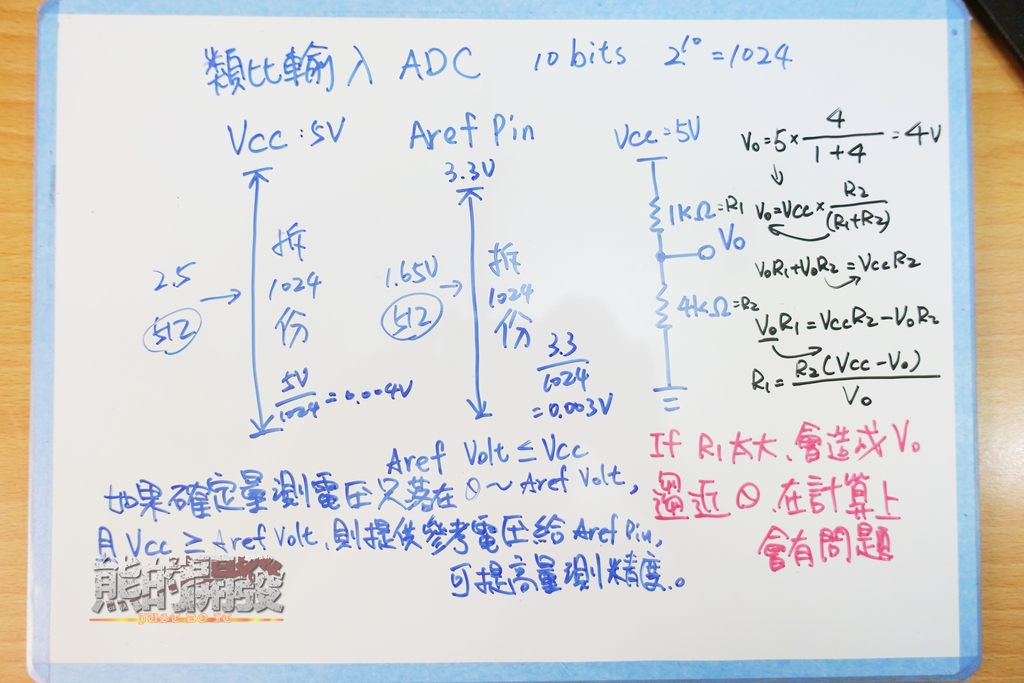 類比輸入 ADC 10 bits 2^10 = 1024
Vcc : 5V
2.5
512
拆
1024
份
5V/1024 = 0.004V
Aref Pin
3.3V
1.65V
512
拆
1024
份
3.3/1024
= 0.003V
Vcc = 5V
1kΩ = R1
Vo
4kΩ = R2
Vo = 5 × 4/(1+4) = 4V
Vo = Vcc × R2/(R1+R2)
VoR1 + VoR2 = VccR2
VoR1 = VccR2 - VoR2
R1 = R2(Vcc - Vo)/Vo
Aref Volt ≤ Vcc
如果確定量測電壓只落在 0 ~ Aref Volt,
且 Vcc ≥ Aref Volt, 則提供參考電壓給 Aref Pin,
可提高量測精度。
If R1太大, 會造成 Vo
趨近 0, 在計算上
會有問題
熊的開發
JUST DO IT